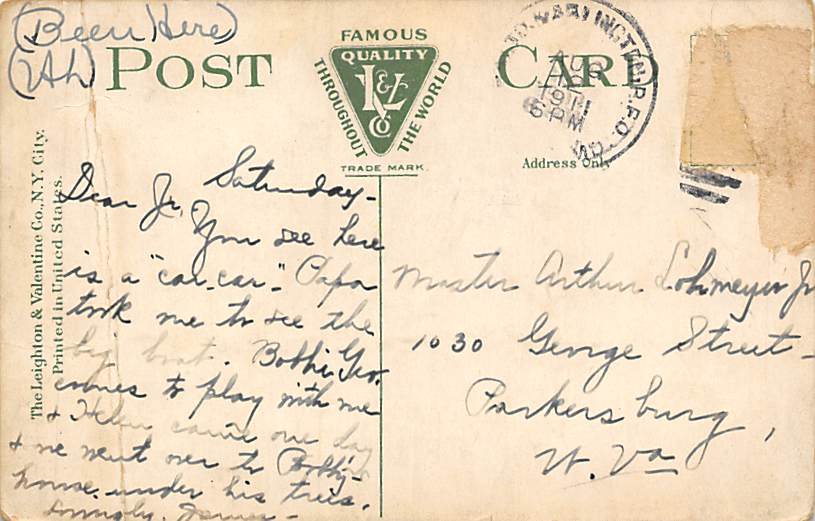 (Been Here)
(Ah)
POST CARD
FAMOUS
QUALITY
L&V
Co
THROUGHOUT THE WORLD
TRADE MARK
AUG
1911
6 PM
R.P.O.
Address Only
The Leighton & Valentine Co., N.Y. City.
Printed in United States.
Saturday-
Dear Jr,
You see here
is a "car-car". Papa
took me to see the
big boat. Bobbie Geo.
comes to play with me
& Helen came one day
& we went over to Bobby
house under his trees.
Lovingly,
Master Arthur Lohmeyer Jr
1030 George Street-
Parkersburg,
W. Va